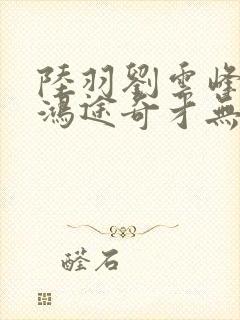 陸羽劉雲峰
鴻途奇才無
醛石